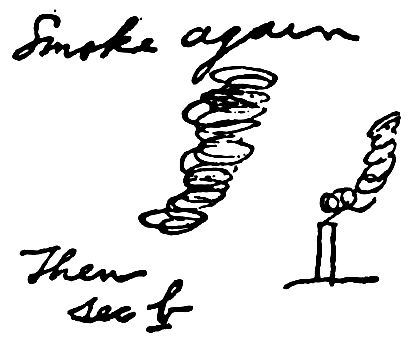 Smoke again
Then
sec b